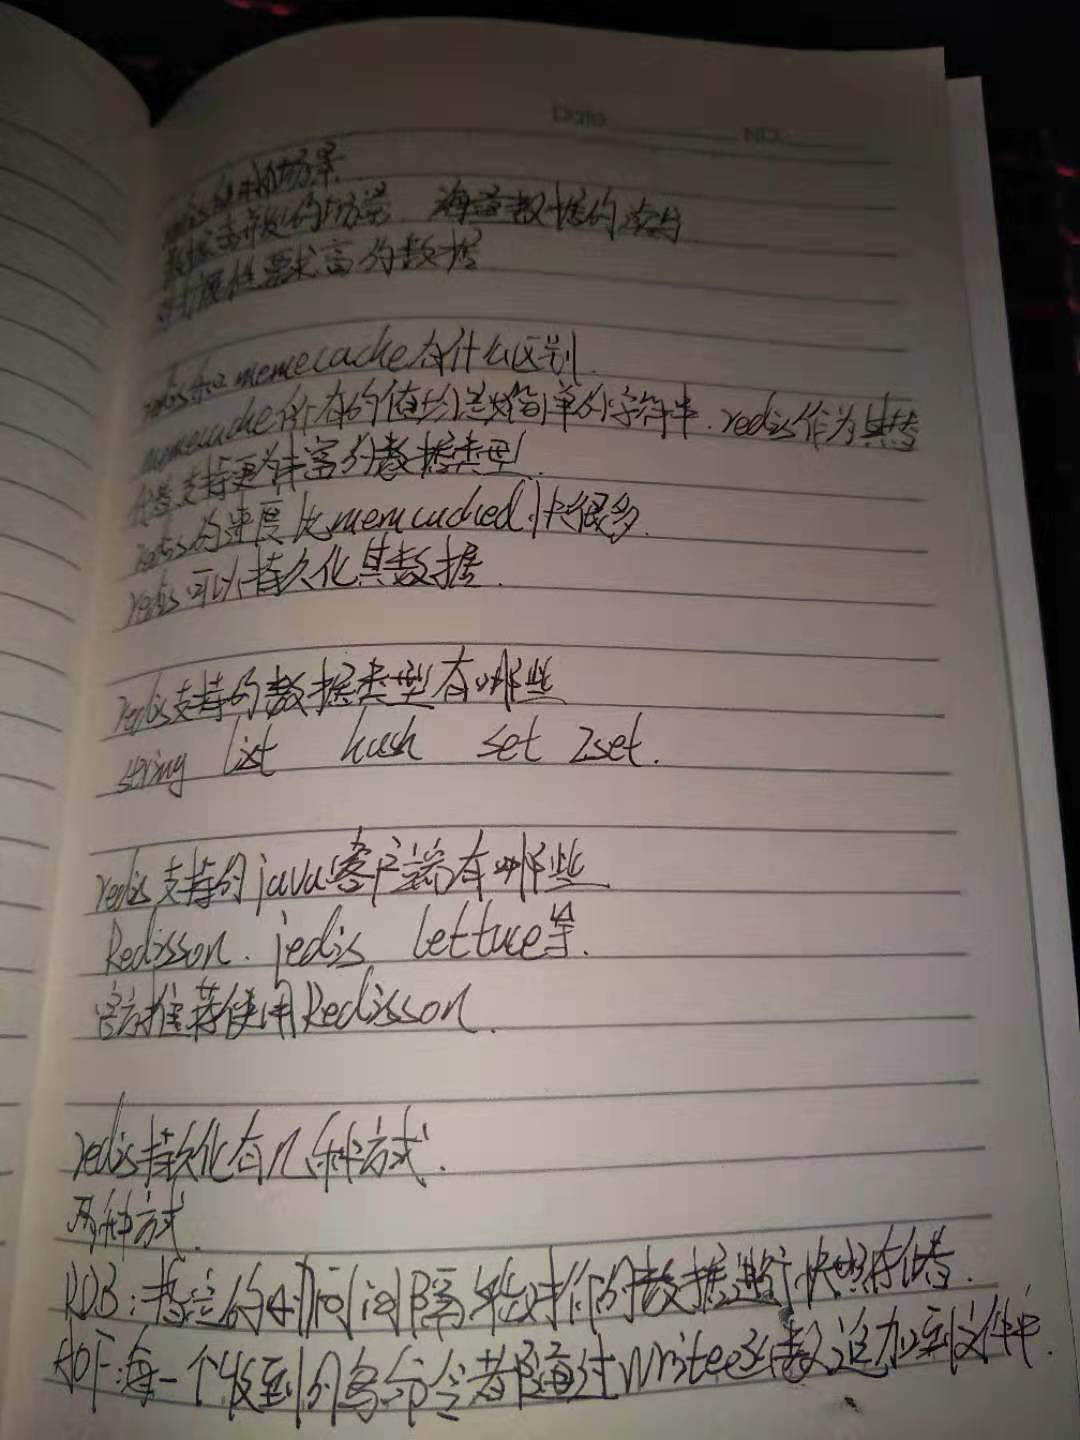 Date NO
redis使用场景
数据高并发的场景 海量数据的读写
对扩展性要求高的数据
redis和memecache有什么区别.
memecache所有的值均是简单的字符串.redis作为其替
代者支持更为丰富的数据类型.
redis的速度比memcached快很多.
redis可以持久化其数据.
redis支持的数据类型有哪些
string list hash set zset.
redis支持的java客户端有哪些
Redisson. jedis lettuce等.
官方推荐使用Redisson.
redis持久化有几种方式.
两种方式.
RDB:指定的时间间隔能对你的数据进行快照存储.
AOF:每一个收到的写命令都通过write函数追加到文件中.